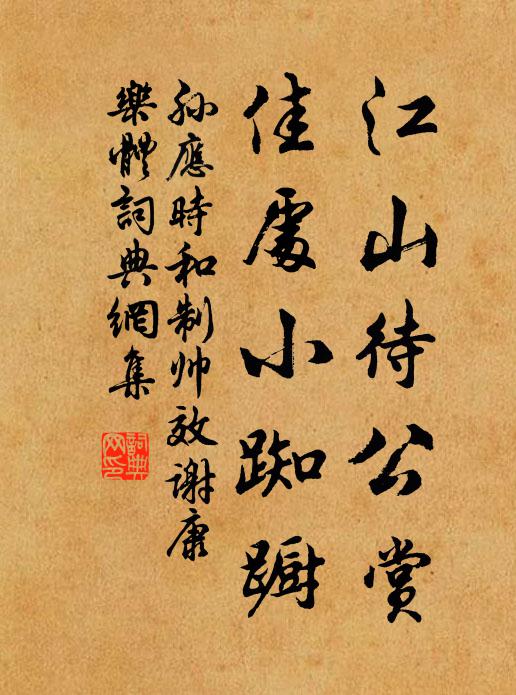 江山待公賞
佳處小踟躕
孫應時和制帅效谢康
樂體詞典網集
詞典
网印